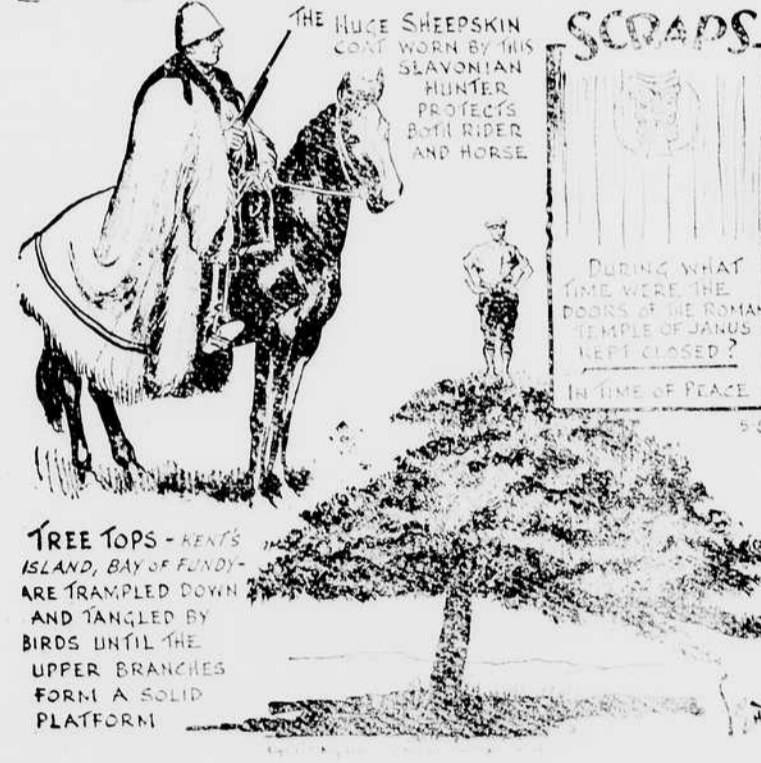 THE HUGE SHEEPSKIN
COAT WORN BY THIS
SLAVONIAN
HUNTER
PROTECTS
BOTH RIDER
AND HORSE
SCRAPS
DURING WHAT
TIME WERE THE
DOORS OF THE ROMAN
TEMPLE OF JANUS
KEPT CLOSED?
IN TIME OF PEACE
TREE TOPS - KENT'S
ISLAND, BAY OF FUNDY-
ARE TRAMPLED DOWN
AND TANGLED BY
BIRDS UNTIL THE
UPPER BRANCHES
FORM A SOLID
PLATFORM